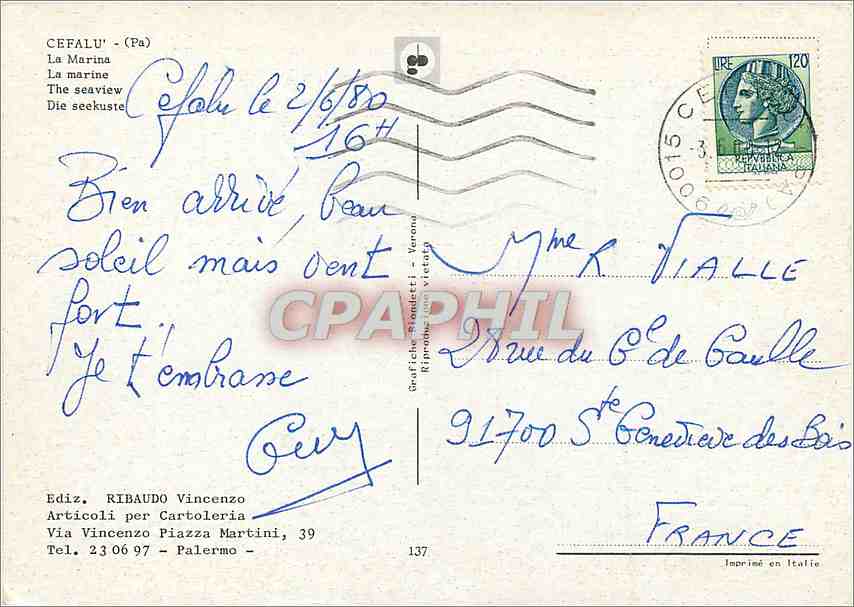 CEFALU' - (Pa)
La Marina
La marine
The seaview
Die seekuste
Cefalu le 2/6/80
16H
Bien arrivé, beau
soleil mais vent
fort.
Je t'embrasse
Guy
Ediz. RIBAUDO Vincenzo
Articoli per Cartoleria
Via Vincenzo Piazza Martini, 39
Tel. 230697 - Palermo -
Grafiche Biondetti - Verona
Riproduzione vietata
137
CPAPHIL
LIRE 120
REPVBBLICA
ITALIANA
90015 CE
Mme R VIALLE
28 rue du Gl de Gaulle
91700 Ste Geneviève des Bois
FRANCE
Imprimé en Italie